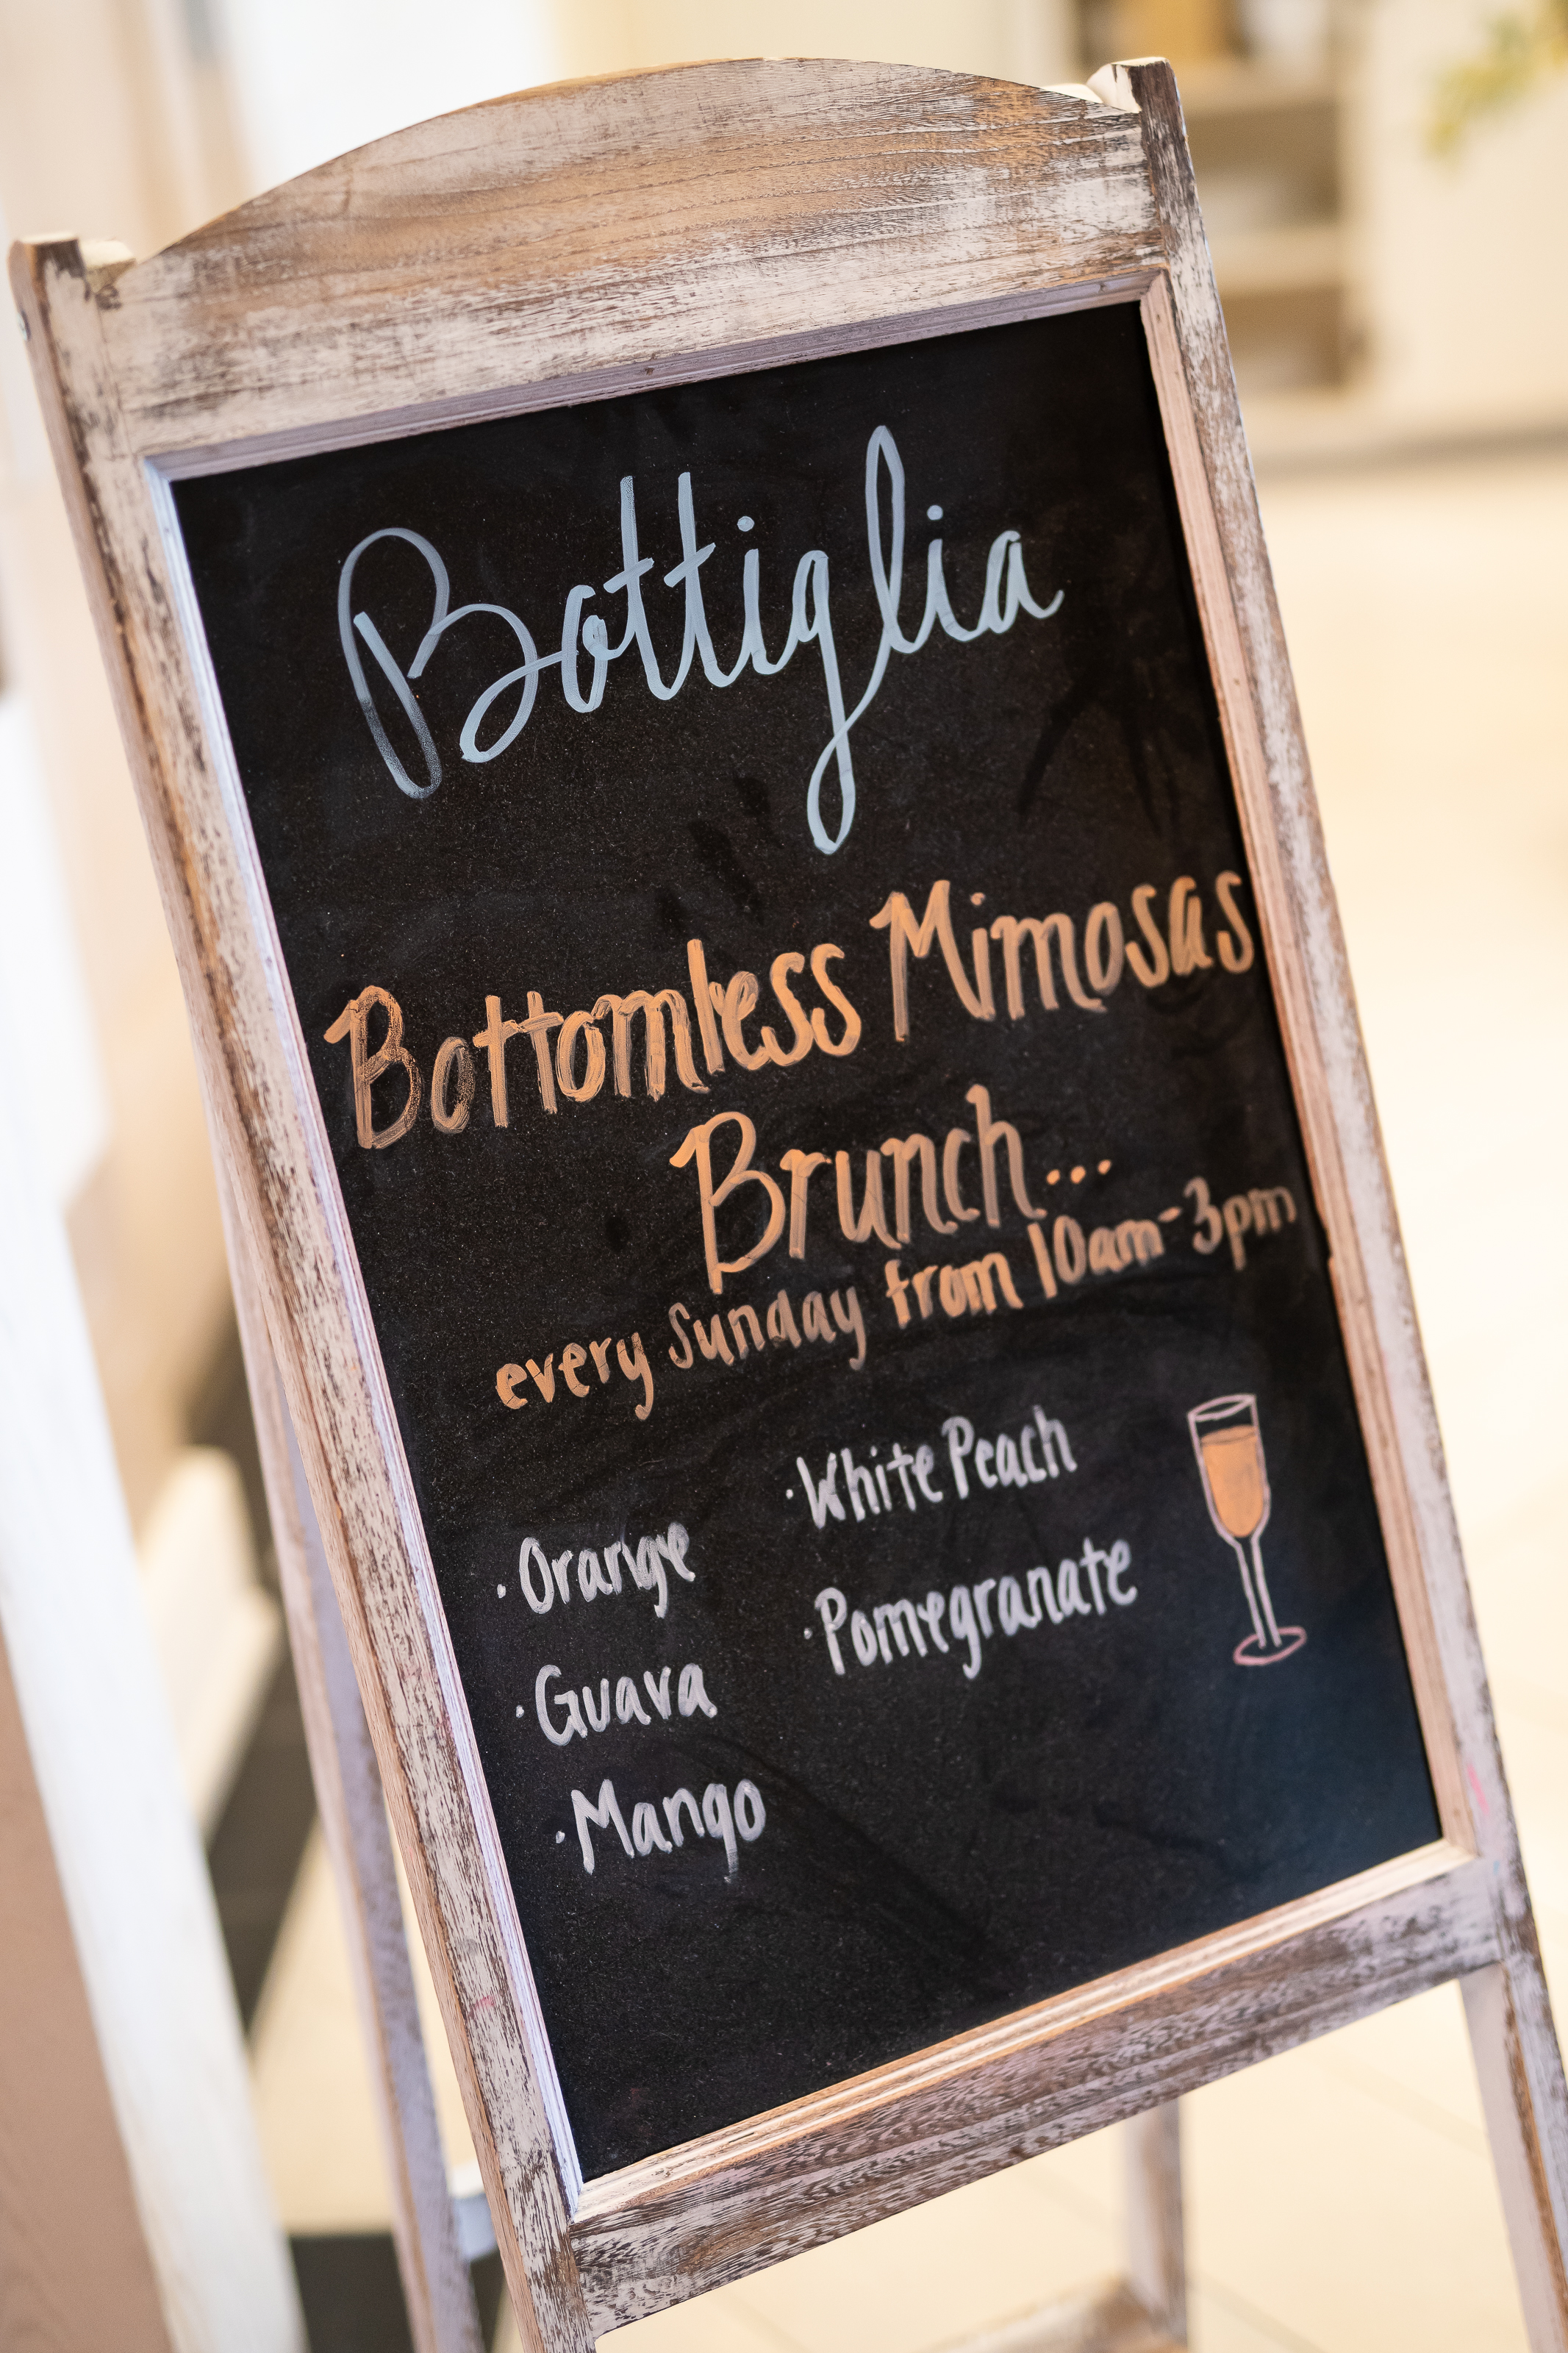 Bottiglia
Bottomless Mimosas
Brunch...
every Sunday from 10am-3pm
· Orange
· Guava
· Mango
· White Peach
· Pomegranate